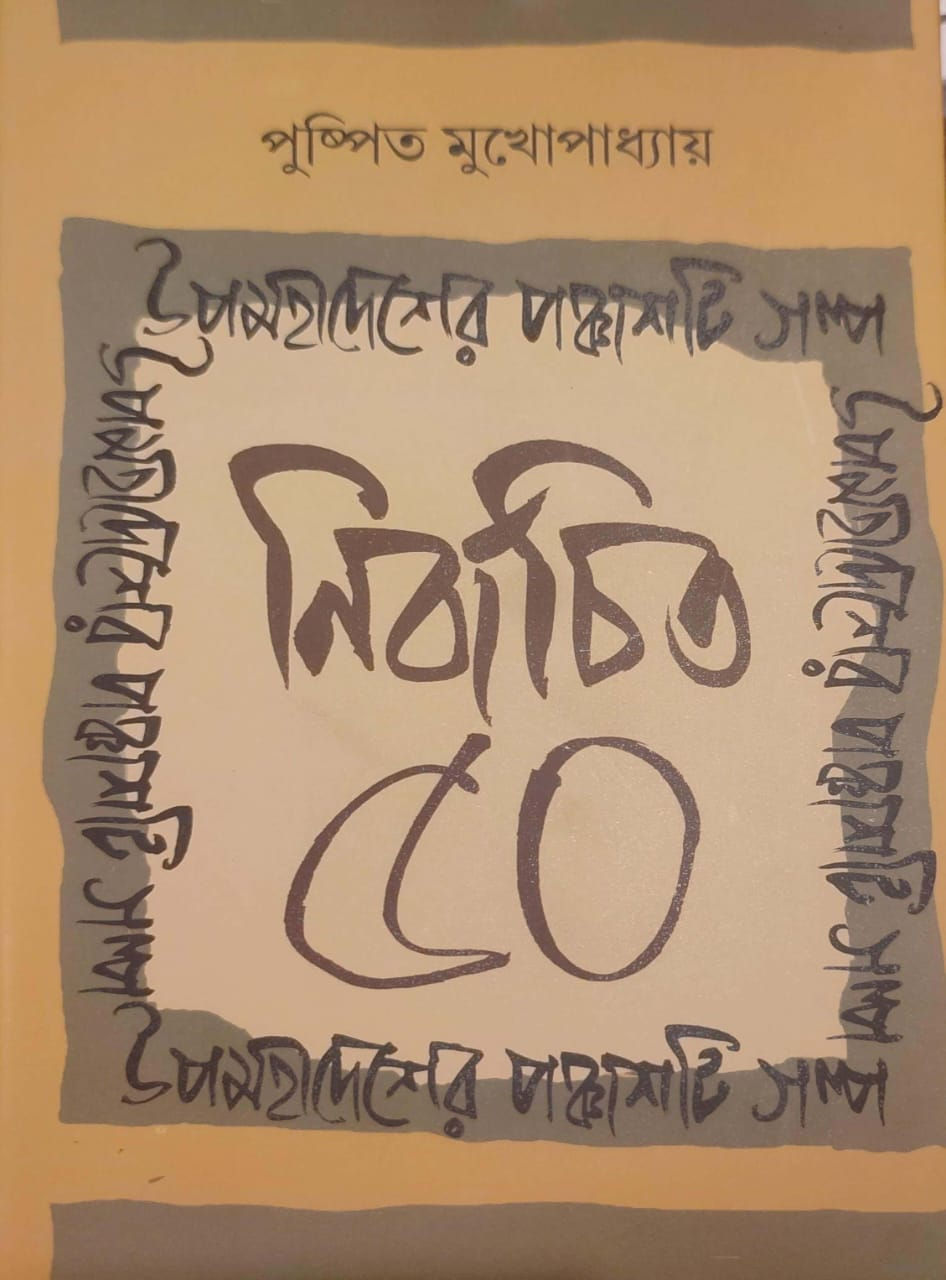 পুষ্পিত মুখোপাধ্যায়
উপমহাদেশের পঞ্চাশটি গল্প
নির্বাচিত
৫০
উপমহাদেশের পঞ্চাশটি গল্প
উপমহাদেশের পঞ্চাশটি গল্প
উপমহাদেশের পঞ্চাশটি গল্প